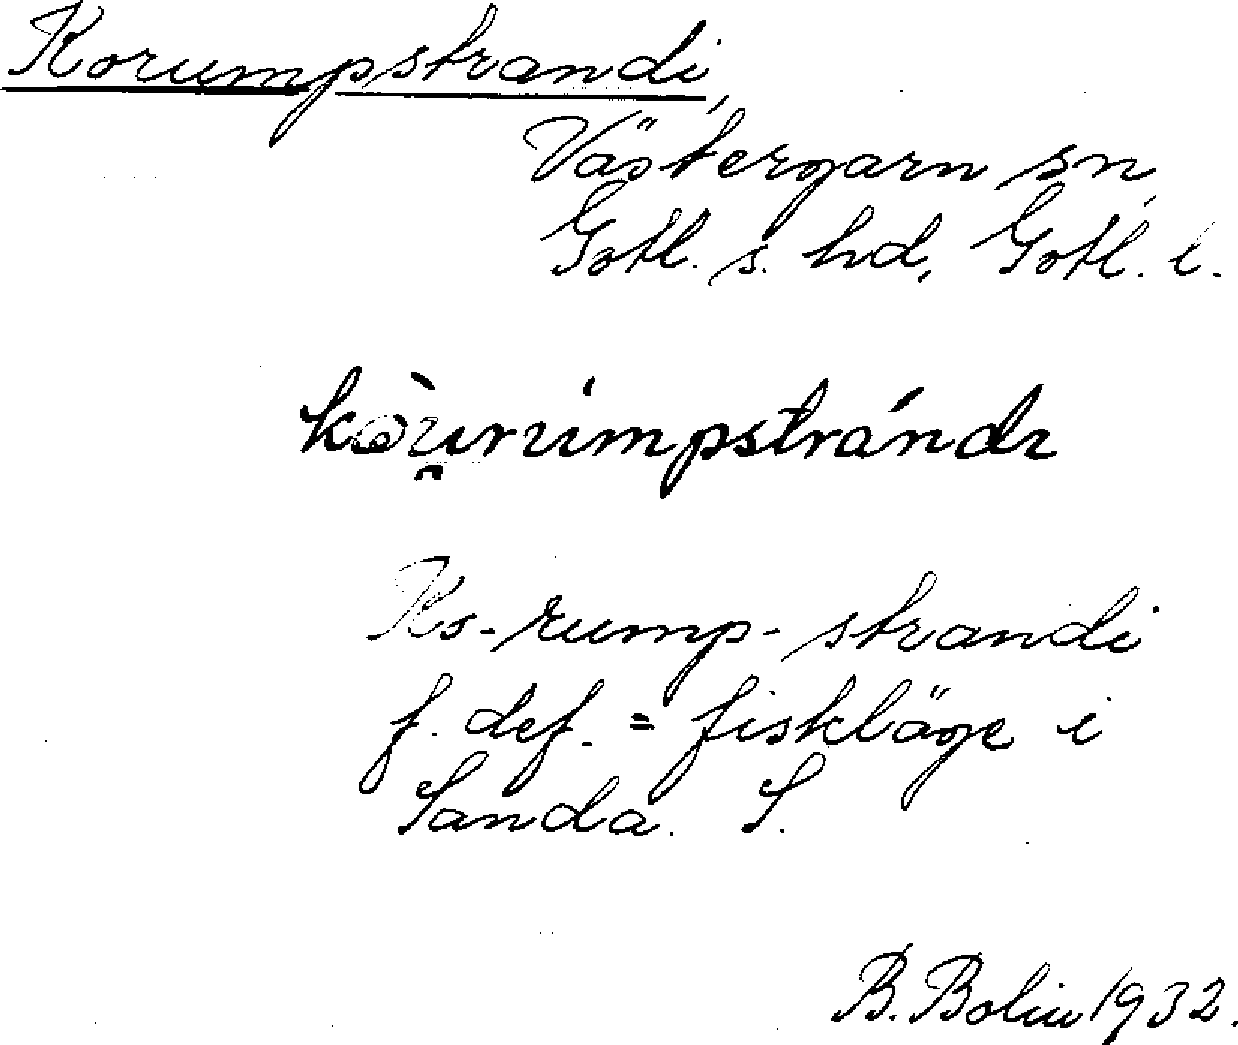 Korumpstrandi,
Västergarn sn,
Gotl. s. hd, Gotl. l.
Ko-rump-strandi
f. def. = fiskläge i
Sanda. S.
B. Bolin 1932.